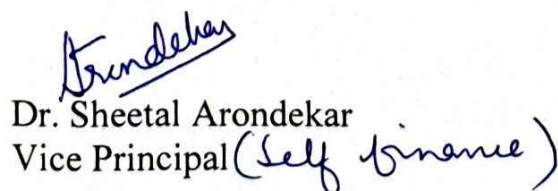 Arondekar
Dr. Sheetal Arondekar
Vice Principal (Self finance)